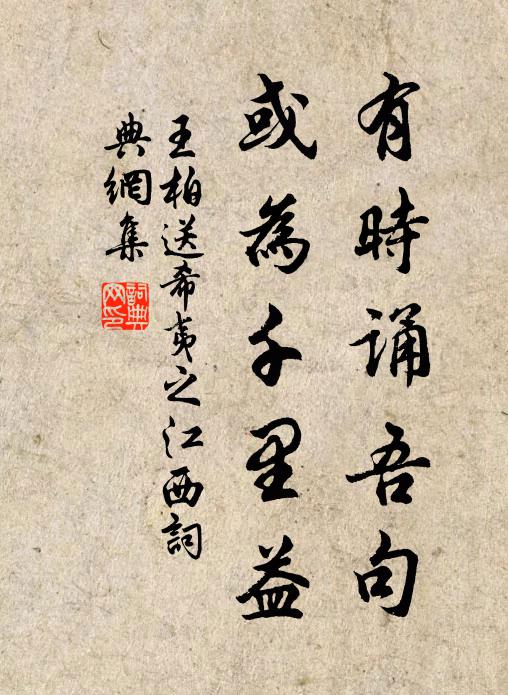 有時誦吾句
或為千里益
王柏送希夷之江西詞
典網集
詞典網印